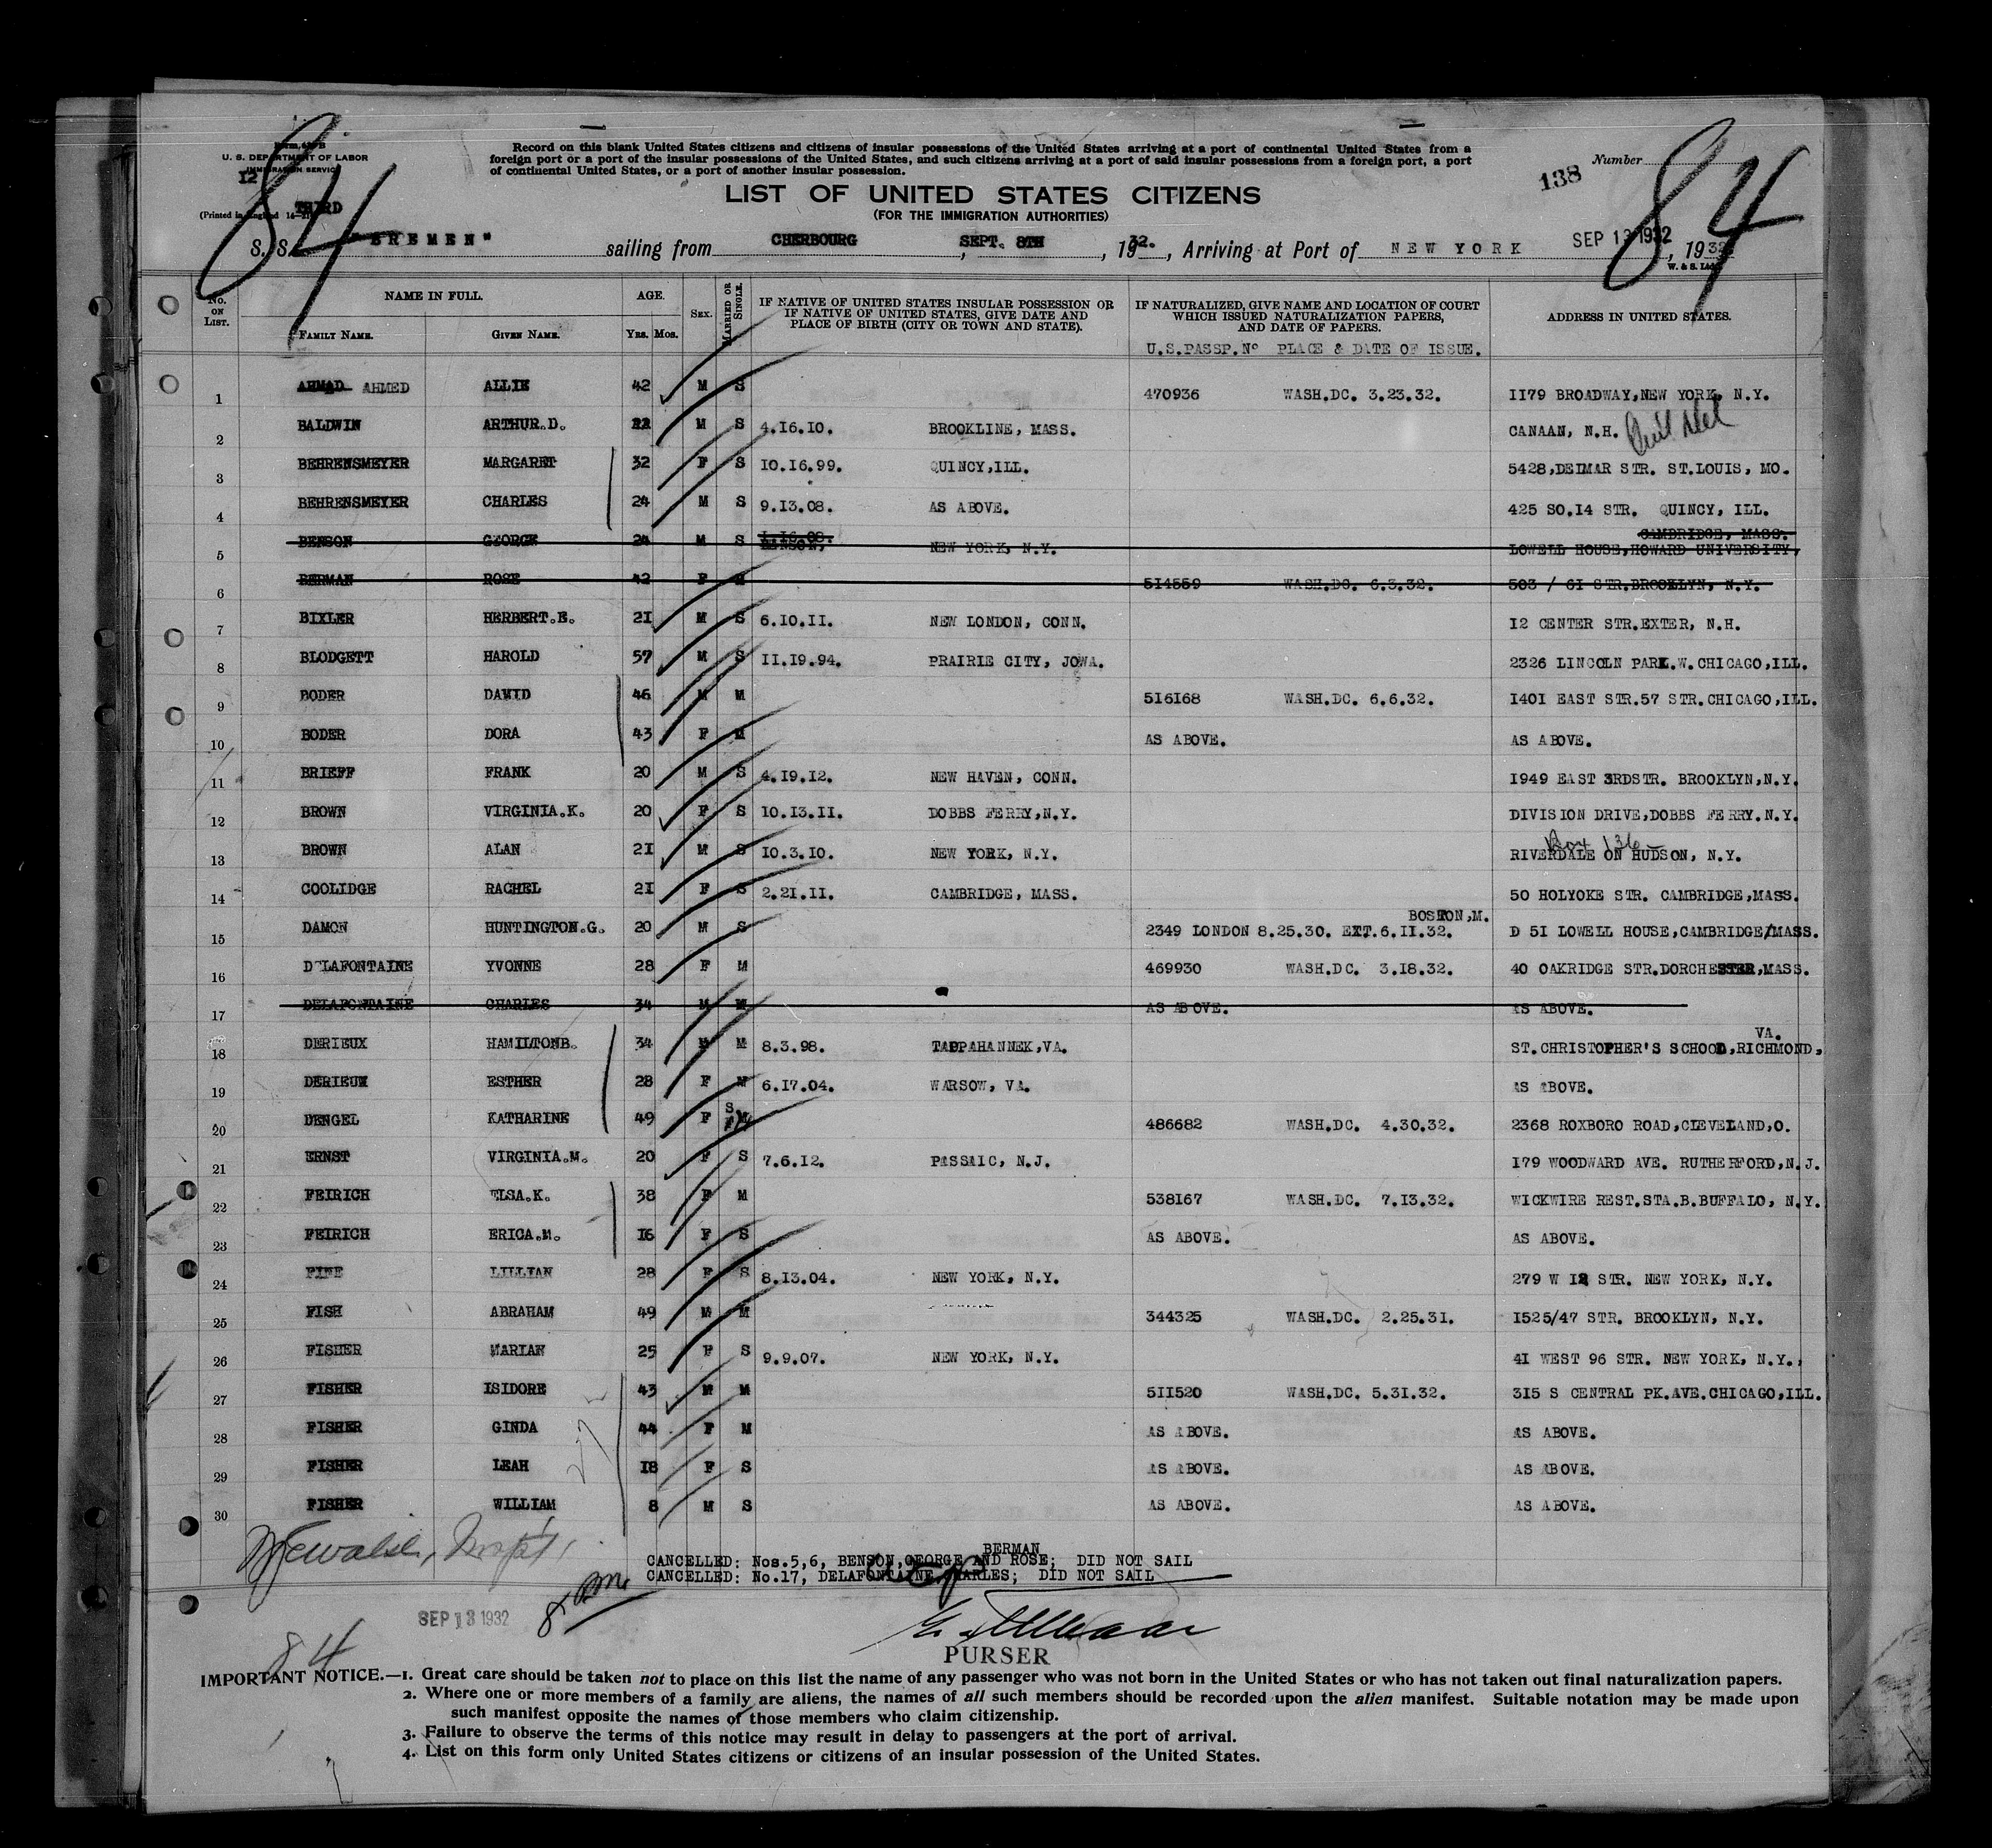 Form 630 B
U. S. DEPARTMENT OF LABOR
IMMIGRATION SERVICE
12
THIRD
84
Record on this blank United States citizens and citizens of insular possessions of the United States arriving at a port of continental United States from a
foreign port or a port of the insular possessions of the United States, and such citizens arriving at a port of said insular possessions from a foreign port, a port
of continental United States, or a port of another insular possession.
Number
138
84
LIST OF UNITED STATES CITIZENS
(FOR THE IMMIGRATION AUTHORITIES)
S. S. "BREMEN" sailing from CHERBOURG, SEPT. 8TH, 1932., Arriving at Port of NEW YORK SEP 13 1932, 1932
No. ON LIST. NAME IN FULL. AGE. SEX. MARRIED OR SINGLE. IF NATIVE OF UNITED STATES INSULAR POSSESSION OR IF NATIVE OF UNITED STATES, GIVE DATE AND PLACE OF BIRTH (CITY OR TOWN AND STATE). IF NATURALIZED, GIVE NAME AND LOCATION OF COURT WHICH ISSUED NATURALIZATION PAPERS, AND DATE OF PAPERS. ADDRESS IN UNITED STATES.
FAMILY NAME. GIVEN NAME. YRS. MOS. U.S.PASSP.No PLACE & DATE OF ISSUE.
1 AHMAD AHMED ALLIE 42 M S 470936 WASH.DC. 3.23.32. 1179 BROADWAY,NEW YORK, N.Y.
2 BALDWIN ARTHUR.D. 22 M S 4.16.10. BROOKLINE, MASS. CANAAN, N.H.
3 BEHRENSMEYER MARGARET 32 F S 10.16.99. QUINCY,ILL. 5428,DEIMAR STR. ST.LOUIS, MO.
4 BEHRENSMEYER CHARLES 24 M S 9.13.08. AS ABOVE. 425 SO.14 STR. QUINCY, ILL.
CAMBRIDGE, MASS.
5 BENSON GEORGE 24 M S 1.16.08. NEW YORK, N.Y. LOWELL HOUSE,HOWARD UNIVERSITY,
6 BERMAN ROSE 42 F M 514559 WASH.DC. 6.3.32. 503 / 61 STR.BROOKLYN, N.Y.
7 BIXLER HERBERT.E. 21 M S 6.10.11. NEW LONDON, CONN. 12 CENTER STR.EXTER, N.H.
8 BLODGETT HAROLD 57 M S 11.19.94. PRAIRIE CITY, JOWA. 2326 LINCOLN PARK.W.CHICAGO,ILL.
9 BODER DAVID 46 M M 516168 WASH.DC. 6.6.32. 1401 EAST STR.57 STR.CHICAGO,ILL.
10 BODER DORA 43 F M AS ABOVE. AS ABOVE.
11 BRIEFF FRANK 20 M S 4.19.12. NEW HAVEN, CONN. 1949 EAST 3RDSTR. BROOKLYN,N.Y.
12 BROWN VIRGINIA.K. 20 F S 10.13.11. DOBBS FERRY,N.Y. DIVISION DRIVE,DOBBS FERRY.N.Y.
Box 136
13 BROWN ALAN 21 M S 10.3.10. NEW YORK, N.Y. RIVERDALE ON HUDSON, N.Y.
14 COOLIDGE RACHEL 21 F S 2.21.11. CAMBRIDGE, MASS. 50 HOLYOKE STR. CAMBRIDGE,MASS.
BOSTON,M.
15 DAMON HUNTINGTON.G. 20 M S 2349 LONDON 8.25.30. EXT.6.11.32. D 51 LOWELL HOUSE,CAMBRIDGE/MASS.
16 DELAFONTAINE YVONNE 28 F M 469930 WASH.DC. 3.18.32. 40 OAKRIDGE STR.DORCHESTER,MASS.
17 DELAFONTAINE CHARLES 34 M M AS ABOVE. AS ABOVE.
VA.
18 DERIEUX HAMILTONB. 34 M M 8.3.98. TAPPAHANNEK,VA. ST.CHRISTOPHER'S SCHOOL,RICHMOND,
19 DERIEUX ESTHER 28 F M 6.17.04. WARSOW, VA. AS ABOVE.
20 DENGEL KATHARINE 49 F S M 486682 WASH.DC. 4.30.32. 2368 ROXBORO ROAD,CLEVELAND,O.
21 ERNST VIRGINIA.M. 20 F S 7.6.12. PASSAIC, N.J. 179 WOODWARD AVE. RUTHERFORD,N.J.
22 FEIRICH ELSA.K. 38 F M 538167 WASH.DC. 7.13.32. WICKWIRE REST.STA.B.BUFFALO, N.Y.
23 FEIRICH ERICA.M. 16 F S AS ABOVE. AS ABOVE.
24 FIFE LILLIAN 28 F S 8.13.04. NEW YORK, N.Y. 279 W 12 STR. NEW YORK, N.Y.
25 FISH ABRAHAM 49 M M 344325 WASH.DC. 2.25.31. 1525/47 STR. BROOKLYN, N.Y.
26 FISHER MARIAN 25 F S 9.9.07. NEW YORK, N.Y. 41 WEST 96 STR. NEW YORK, N.Y.,
27 FISHER ISIDORE 43 M M 511520 WASH.DC. 5.31.32. 315 S CENTRAL PK.AVE.CHICAGO,ILL.
28 FISHER GINDA 44 F M AS ABOVE. AS ABOVE.
29 FISHER LEAH 18 F S AS ABOVE. AS ABOVE.
30 FISHER WILLIAM 8 M S AS ABOVE. AS ABOVE.
BERMAN
CANCELLED: Nos.5,6, BENSON,GEORGE AND ROSE; DID NOT SAIL
CANCELLED: No.17, DELAFONTAINE,CHARLES; DID NOT SAIL
SEP 13 1932
PURSER
84
IMPORTANT NOTICE.—1. Great care should be taken not to place on this list the name of any passenger who was not born in the United States or who has not taken out final naturalization papers.
2. Where one or more members of a family are aliens, the names of all such members should be recorded upon the alien manifest. Suitable notation may be made upon
such manifest opposite the names of those members who claim citizenship.
3. Failure to observe the terms of this notice may result in delay to passengers at the port of arrival.
4. List on this form only United States citizens or citizens of an insular possession of the United States.